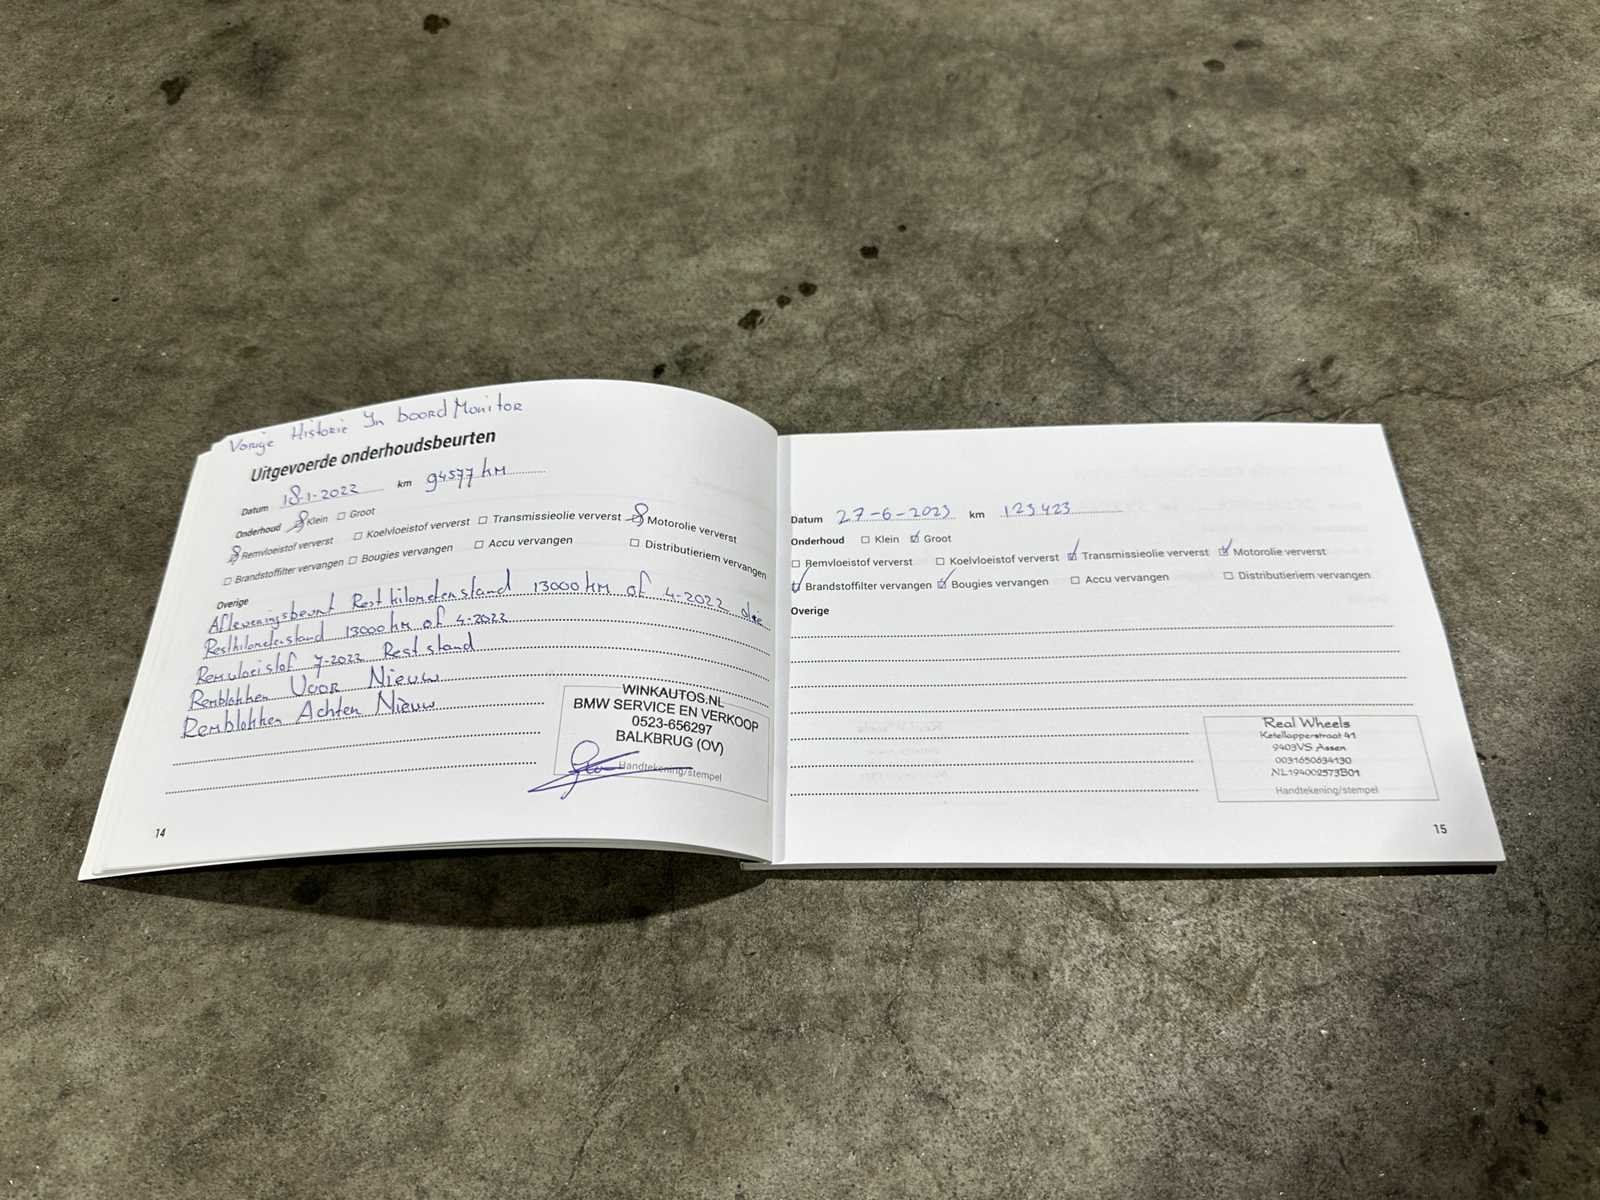 Vorige Historie In boord Monitor
Uitgevoerde onderhoudsbeurten
Datum 18-1-2022 km 94577 km
Onderhoud Klein Groot
Remvloeistof ververst Koelvloeistof ververst Transmissieolie ververst Motorolie ververst
Brandstoffilter vervangen Bougies vervangen Accu vervangen Distributieriem vervangen
Overige
Afleveringsbeurt Restkilometerstand 13000 km of 4-2022 olie
Restkilometerstand 13000 km of 4-2022
Remvloeistof 7-2022 Reststand
Remblokken Voor Nieuw
Remblokken Achter Nieuw
WINKAUTOS.NL
BMW SERVICE EN VERKOOP
0523-656297
BALKBRUG (OV)
Handtekening/stempel
14
Datum 27-6-2023 km 123423
Onderhoud Klein Groot
Remvloeistof ververst Koelvloeistof ververst Transmissieolie ververst Motorolie ververst
Brandstoffilter vervangen Bougies vervangen Accu vervangen Distributieriem vervangen
Overige
Real Wheels
Ketellapperstraat 41
9403VS Assen
0031650634130
NL194002573B01
Handtekening/stempel
15